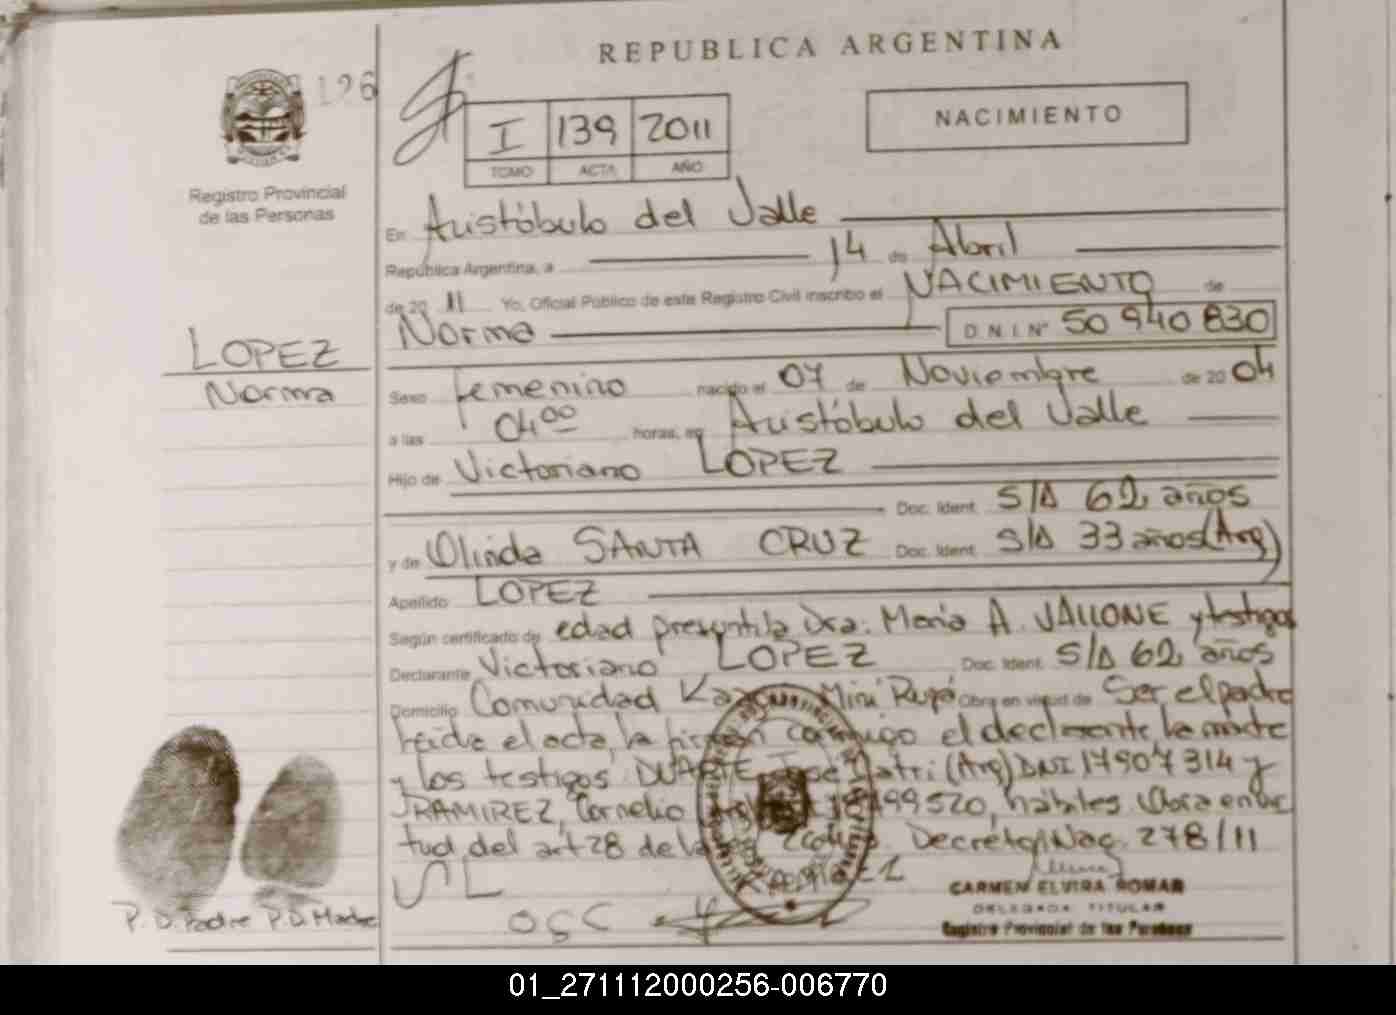 REPUBLICA ARGENTINA
196
I 139 2011
TOMO ACTA AÑO
NACIMIENTO
Registro Provincial
de las Personas
En Aristóbulo del Valle
República Argentina, a 14 de Abril
de 20 11 Yo, Oficial Público de este Registro Civil inscribo el NACIMIENTO de
Norma D.N.I. Nº 50 940 830
LOPEZ
Norma
Sexo femenino nacido el 07 de Noviembre de 20 04
a las 04 00 horas, en Aristóbulo del Valle
Hijo de Victoriano LOPEZ
Doc. Ident. S/D 62 años
y de Olinda SANTA CRUZ Doc. Ident. S/D 33 años (Arg)
Apellido LOPEZ
Según certificado de edad presuntiva Dra: María A. VALLONE y testigos
Declarante Victoriano LOPEZ Doc. Ident. S/D 62 años
Domicilio Comunidad Mini Obra en virtud de Ser el padre
Leída el acta, la firman conmigo el declarante la madre
y los testigos DUARTE José (Arg) DNI 17907314 y
RAMIREZ, Cornelio 18199520, hábiles. Obra en vir
tud del art 28 de la Decreto Nac. 278/11
VL
OSC
RAMIREZ
CARMEN ELVIRA ROMAR
DELEGADA TITULAR
Registro Provincial de las Personas
P. D. Padre P. D. Madre
01_271112000256-006770